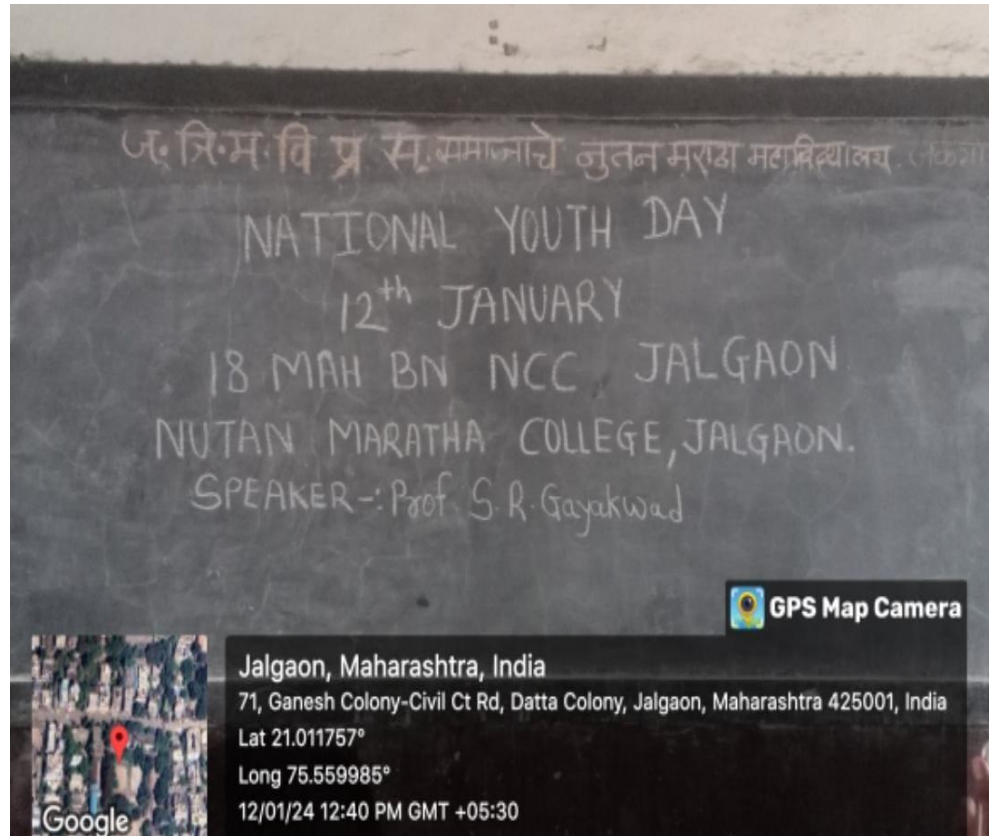 ज. त्रि. म. वि प्र स. समाजाचे नुतन मराठा महाविद्यालय.
NATIONAL YOUTH DAY
12th JANUARY
18 MAH BN NCC JALGAON
NUTAN MARATHA COLLEGE, JALGAON.
SPEAKER-: Prof. S. R. Gayakwad
GPS Map Camera
Jalgaon, Maharashtra, India
71, Ganesh Colony-Civil Ct Rd, Datta Colony, Jalgaon, Maharashtra 425001, India
Lat 21.011757°
Long 75.559985°
12/01/24 12:40 PM GMT +05:30
Google